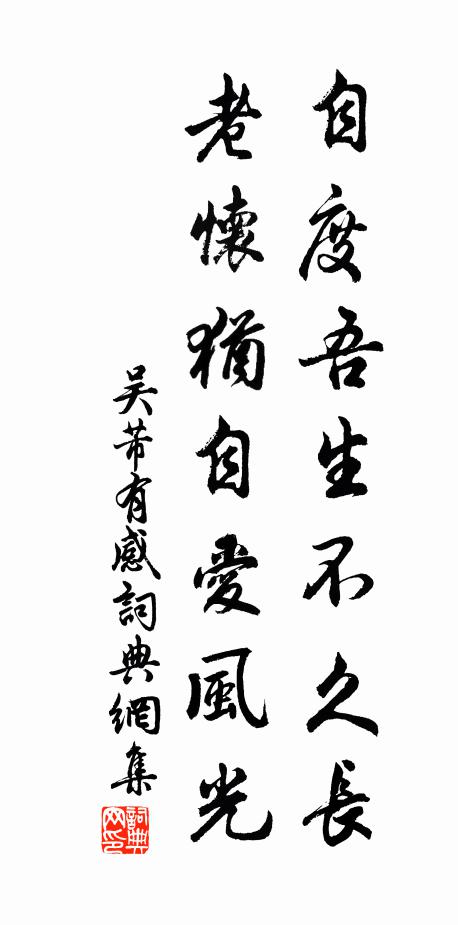 自度吾生不久長
老懷猶自愛風光
吳芾有感詞典網集
詞典網印